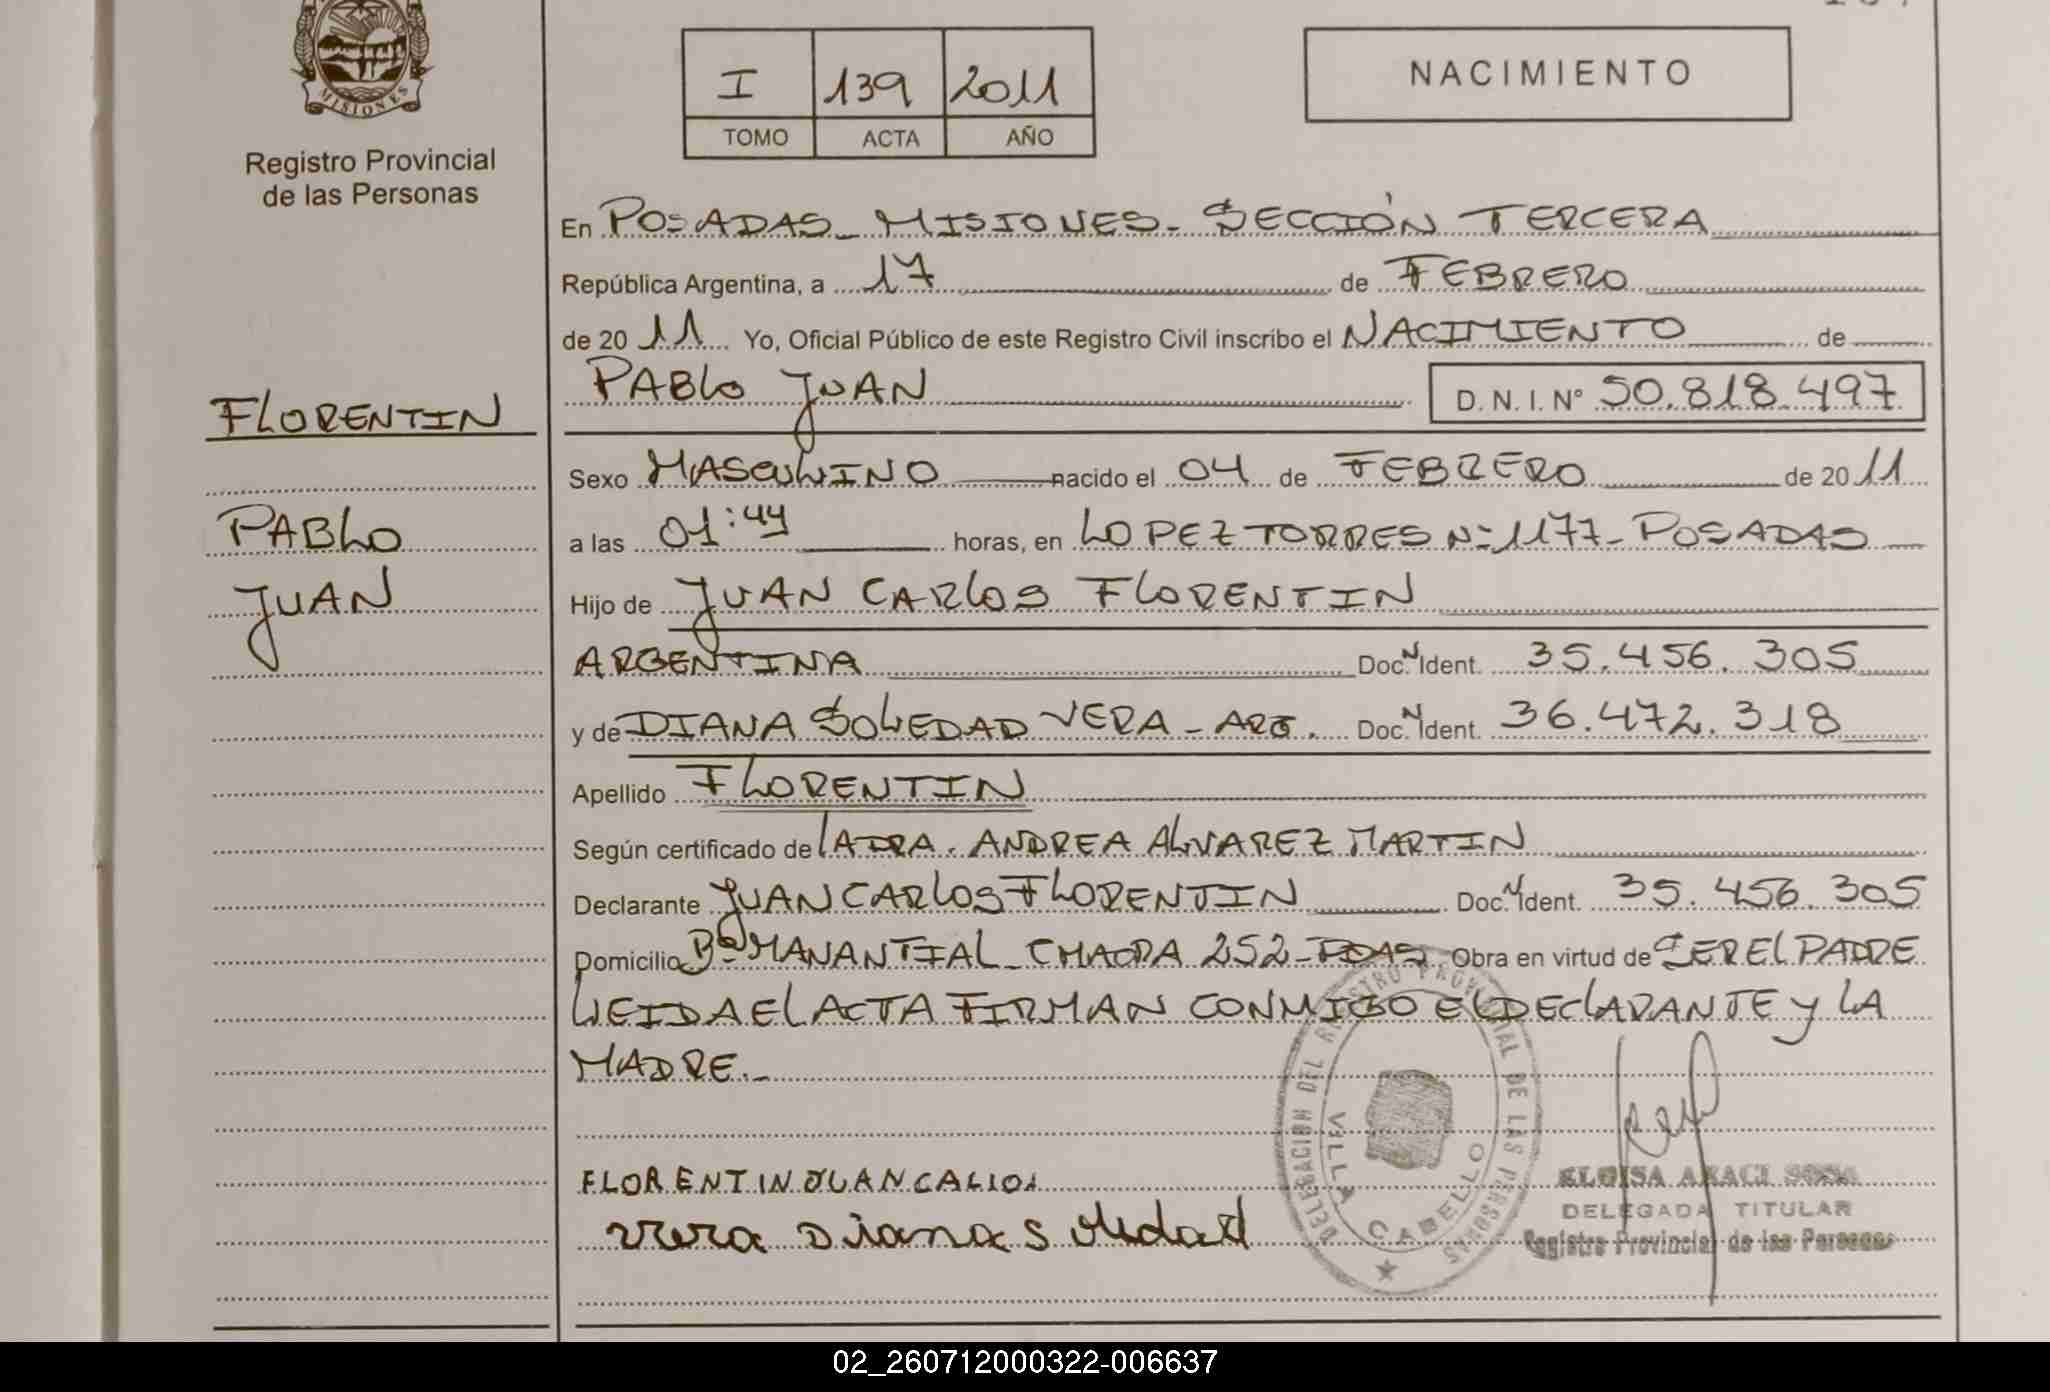 MISIONES
Registro Provincial
de las Personas
I 139 2011
TOMO ACTA AÑO
NACIMIENTO
En POSADAS - MISIONES - SECCIÓN TERCERA
República Argentina, a 17 de FEBRERO
de 20 11 Yo, Oficial Público de este Registro Civil inscribo el NACIMIENTO de
PABLO JUAN D. N. I. Nº 50.818.497
FLORENTIN
PABLO
JUAN
Sexo MASCULINO nacido el 04 de FEBRERO de 20 11
a las 01:44 horas, en LOPEZ TORRES Nº 1177 - POSADAS
Hijo de JUAN CARLOS FLORENTIN
ARGENTINA Doc. N Ident. 35.456.305
y de DIANA SOLEDAD VERA - ARG. Doc. N Ident. 36.472.318
Apellido FLORENTIN
Según certificado de LA DRA. ANDREA ALVAREZ MARTIN
Declarante JUAN CARLOS FLORENTIN Doc. N Ident. 35.456.305
Domicilio Bº MANANTIAL - CHACRA 252 - PDAS Obra en virtud de SER EL PADRE
LEIDA EL ACTA FIRMAN CONMIGO EL DECLARANTE y LA
MADRE.-
FLORENTIN JUAN CALLOS
vera Diana Soledad
DELEGACION DEL REGISTRO PROVINCIAL DE LAS PERSONAS
VILLA CABELLO
ELOISA ARACI SOSA
DELEGADA TITULAR
Registro Provincial de las Personas
02_260712000322-006637